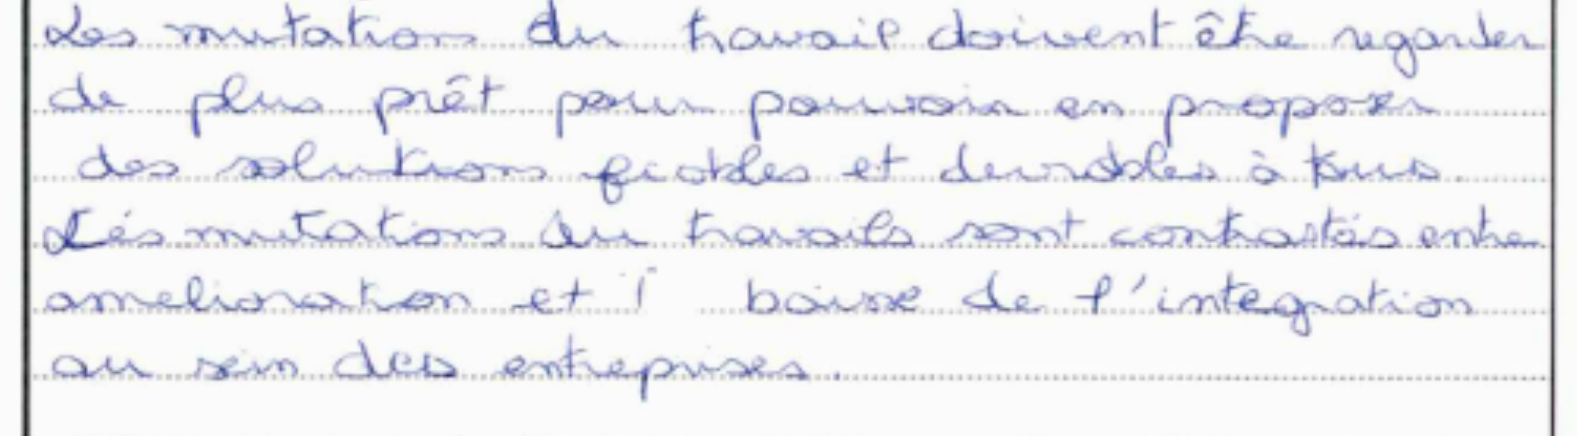 Les mutation du travail doivent être regarder
de plus prêt pour pouvoir en proposer
des solutions fiables et durables à tous.
Lés mutations du travails sont contrastés entre
amelioration et baisse de l'integration
au sein des entreprises.